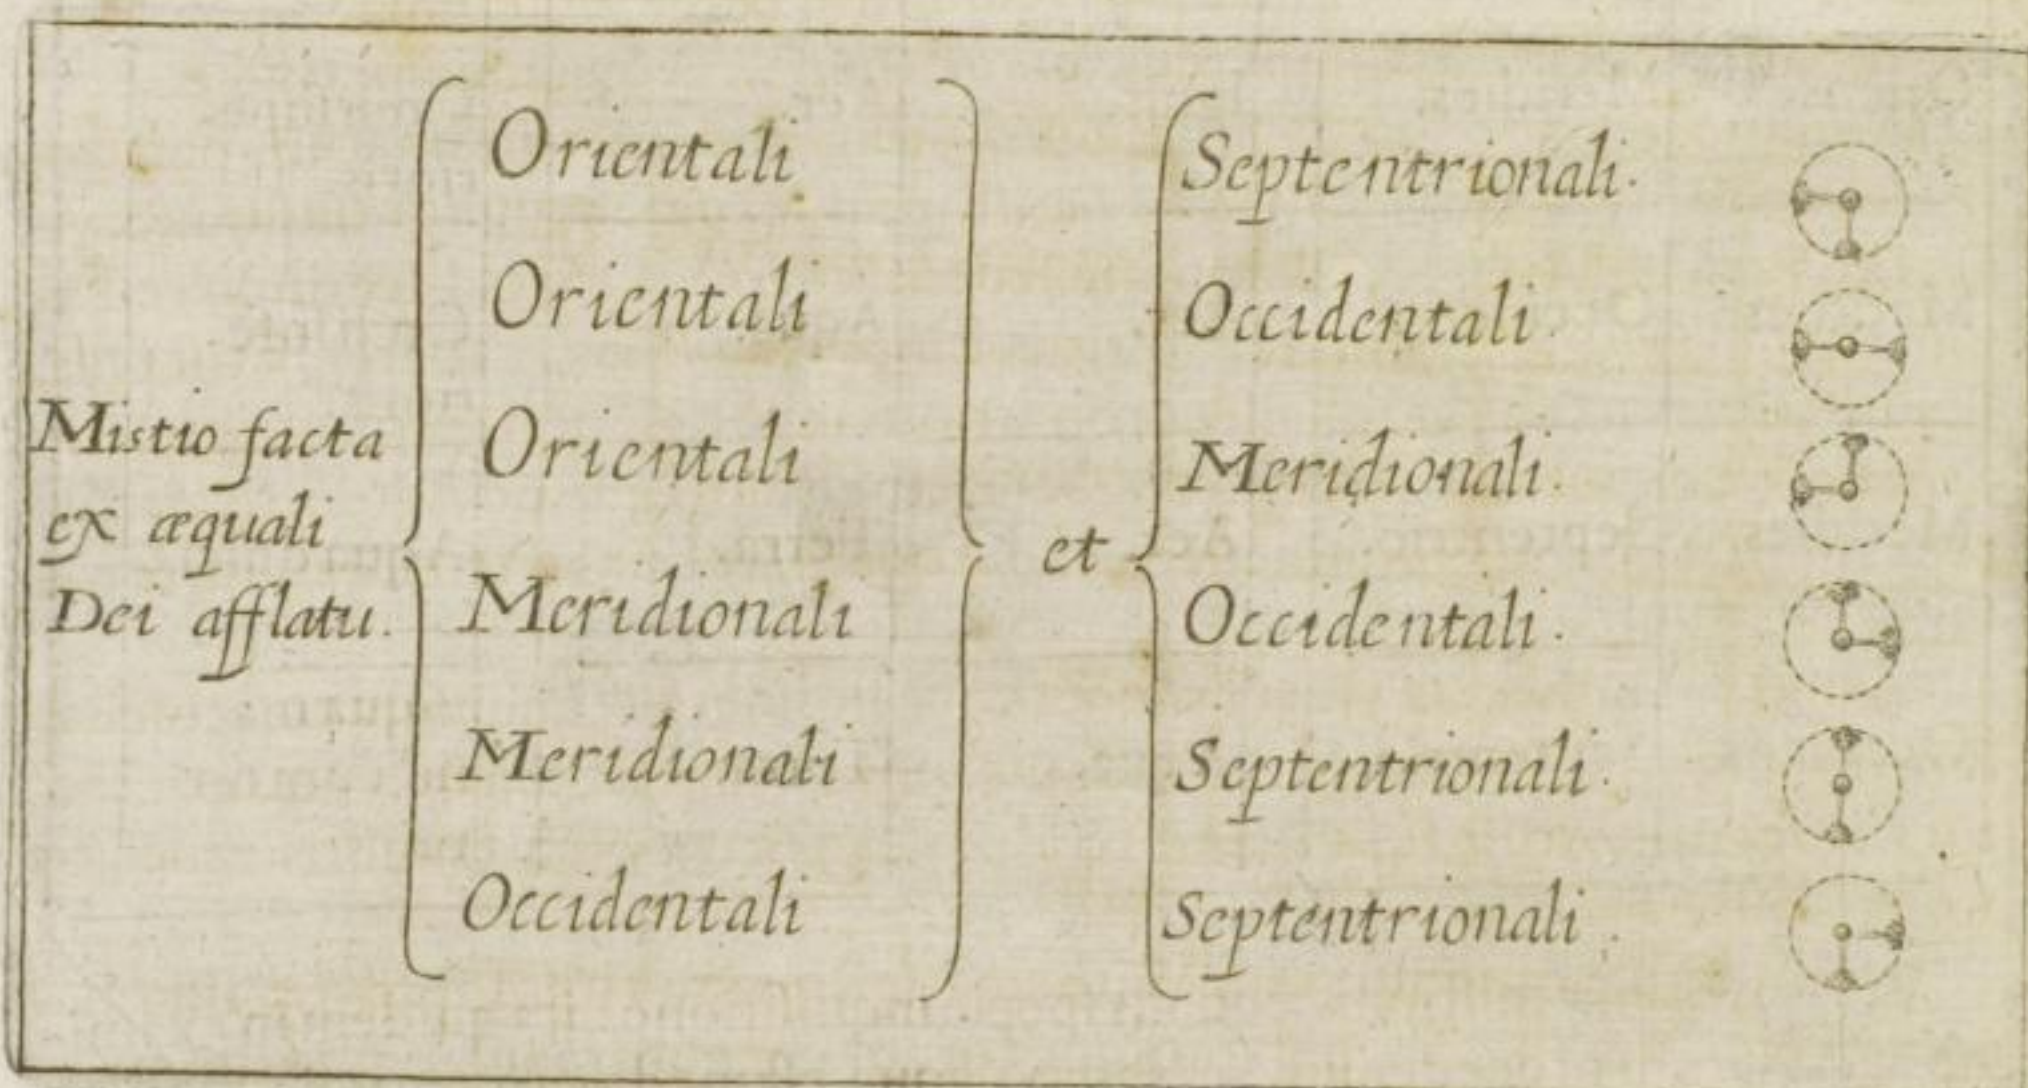 Mistio facta
ex æquali
Dei afflatu.
Orientali
Orientali
Orientali
Meridionali
Meridionali
Occidentali
et
Septentrionali.
Occidentali.
Meridionali.
Occidentali.
Septentrionali.
Septentrionali.